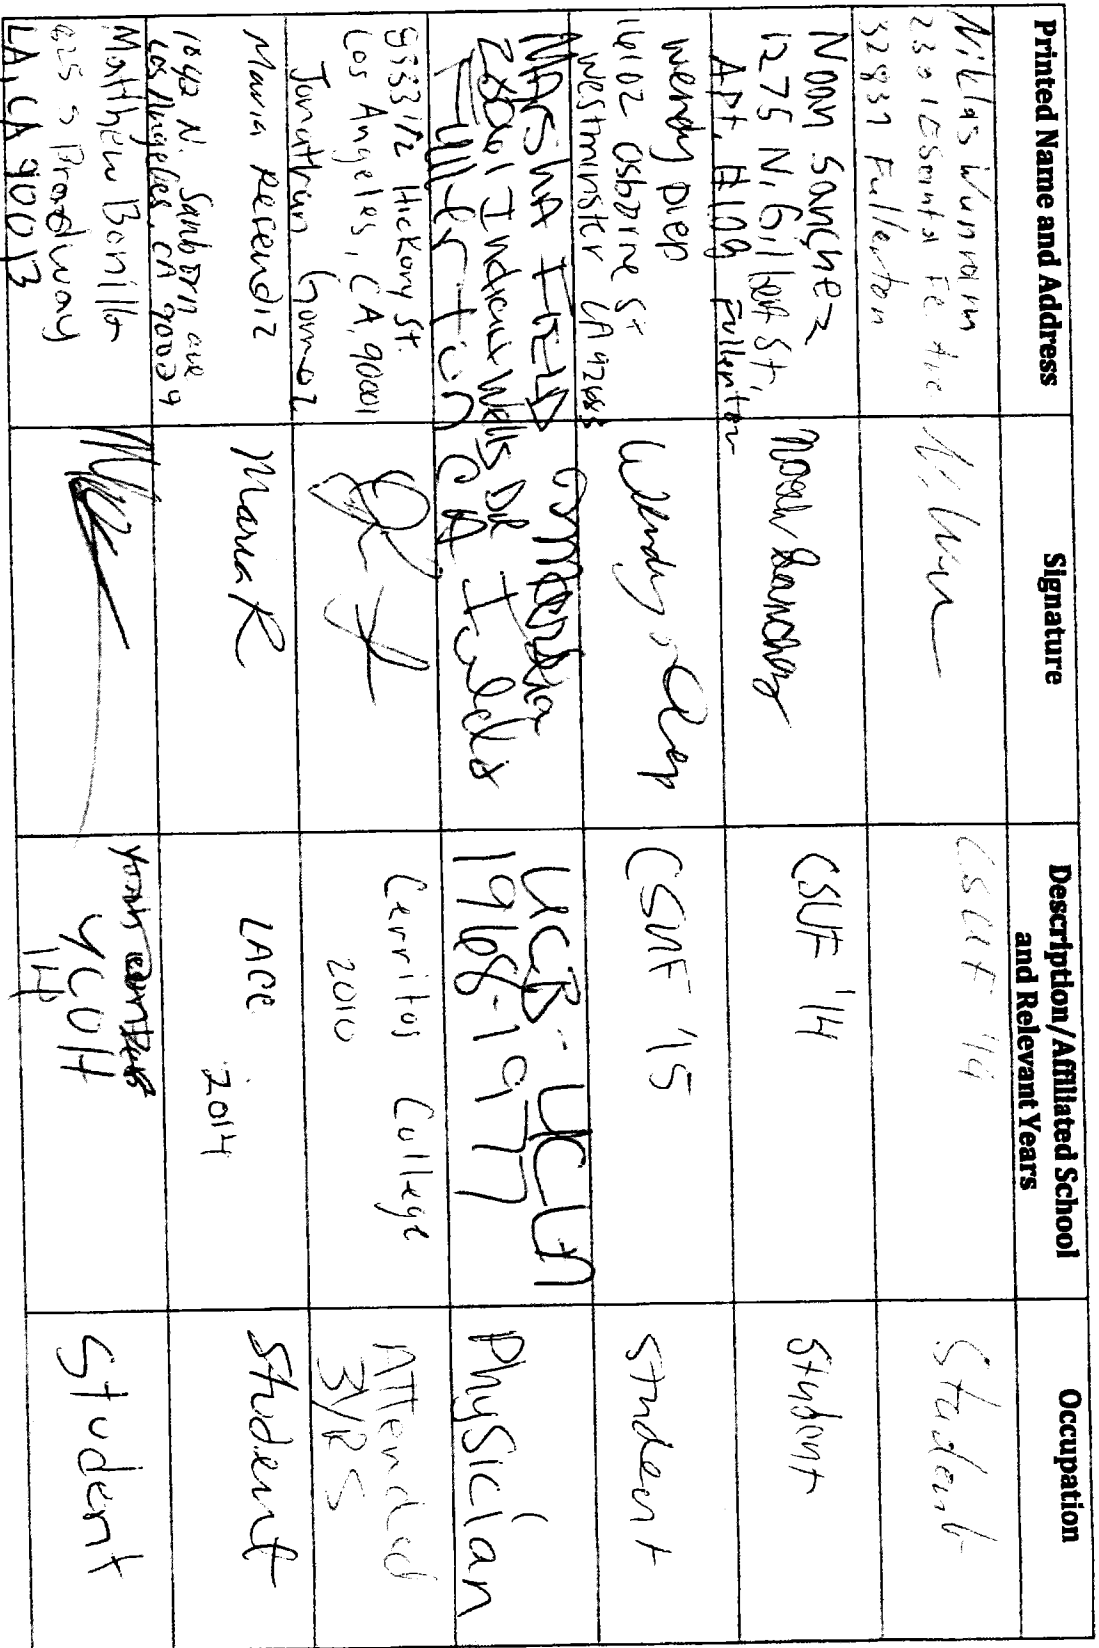 Printed Name and Address
Signature
Description/Affiliated School
and Relevant Years
Occupation
Niklas
2301 E Santa Fe Ave
Fullerton
CSUF '14
Student
Noah Sanchez
1275 N. Gilbert St.
Apt. Fullerton
Noah Sanchez
CSUF '14
Student
Wendy Diep
16102 Osborne St
Westminster CA
Wendy Diep
CSUF '15
Student
MARSHA FIELD
Indian Wells DR
Fullerton CA
Marsha Fields
UCB - UCLA
1968-1977
Physician
9533 1/2 Hickory St.
Los Angeles, CA, 90001
Jonathan Gomez
Cerritos College
2010
Attended
3 YRS
Maria Resendiz
N. Sanborn ave
Los Angeles, CA
Maria R
LACC
2014
Student
Matthew Bonilla
625 S Broadway
LA, CA 90013
14
Student